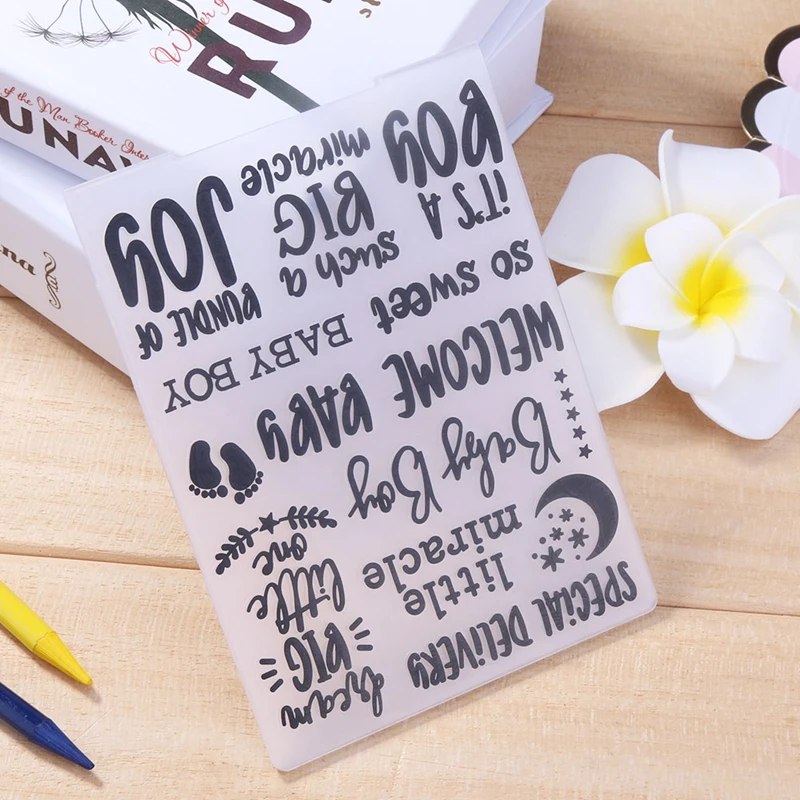 Winner of
RU
of the Man Booker Inter
UNAW
na
SPECIAL DELIVERY
dream
BIG
little
miracle
one
little
Baby Boy
WELCOME BABY
so sweet
BABY BOY
IT'S A
BOY
such a
BIG
miracle
BUNDLE OF
JOY